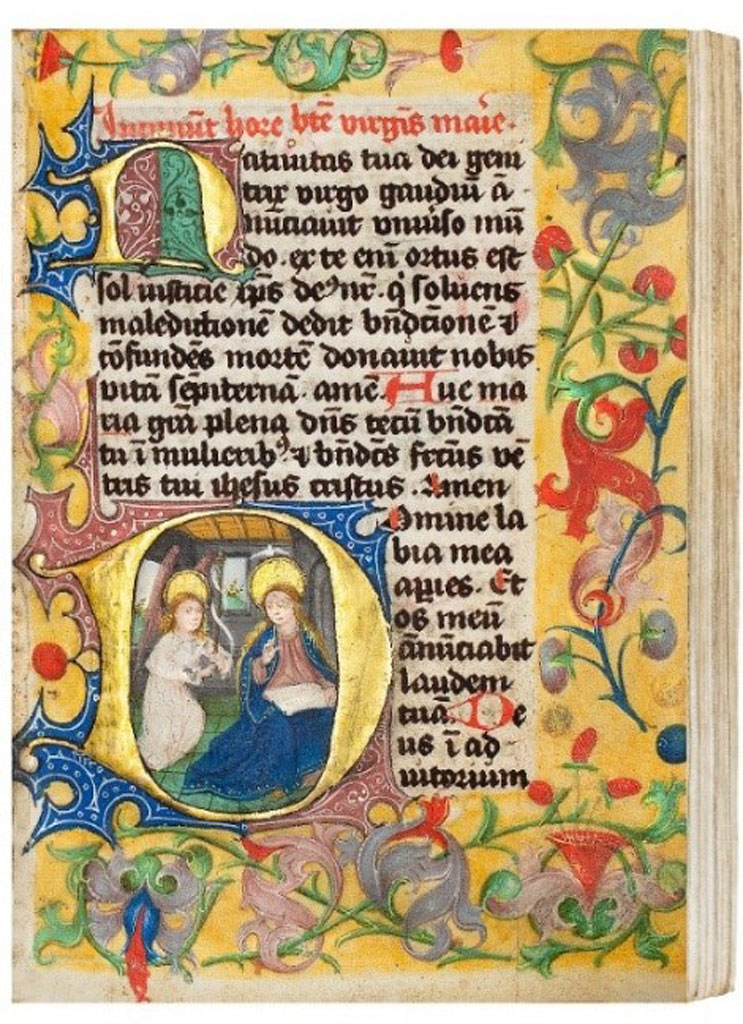 Incipiūt hore btē virgīs marie.
Natiuitas tua dei geni
trix virgo gaudiū ā
nūciauit vniūso mū
do. ex te enī ortus est
sol iusticie xp̄s deꝰ nr̄. qͥ soluens
maledictionē dedit bn̄dctionē ⁊
cōfundēs mortē donauit nobis
vitā sēpiternā. amē. Aue ma
ria grā plena dn̄s tecū bn̄dcā
tu ī mulieribꝰ ⁊ bn̄dcs frcūs vē
tris tui ihesus cristus. Amen
Domine la
bia mea
apries. Et
os meū
ānūciabit
laudem
tuā. De
us ī ad
iutorium